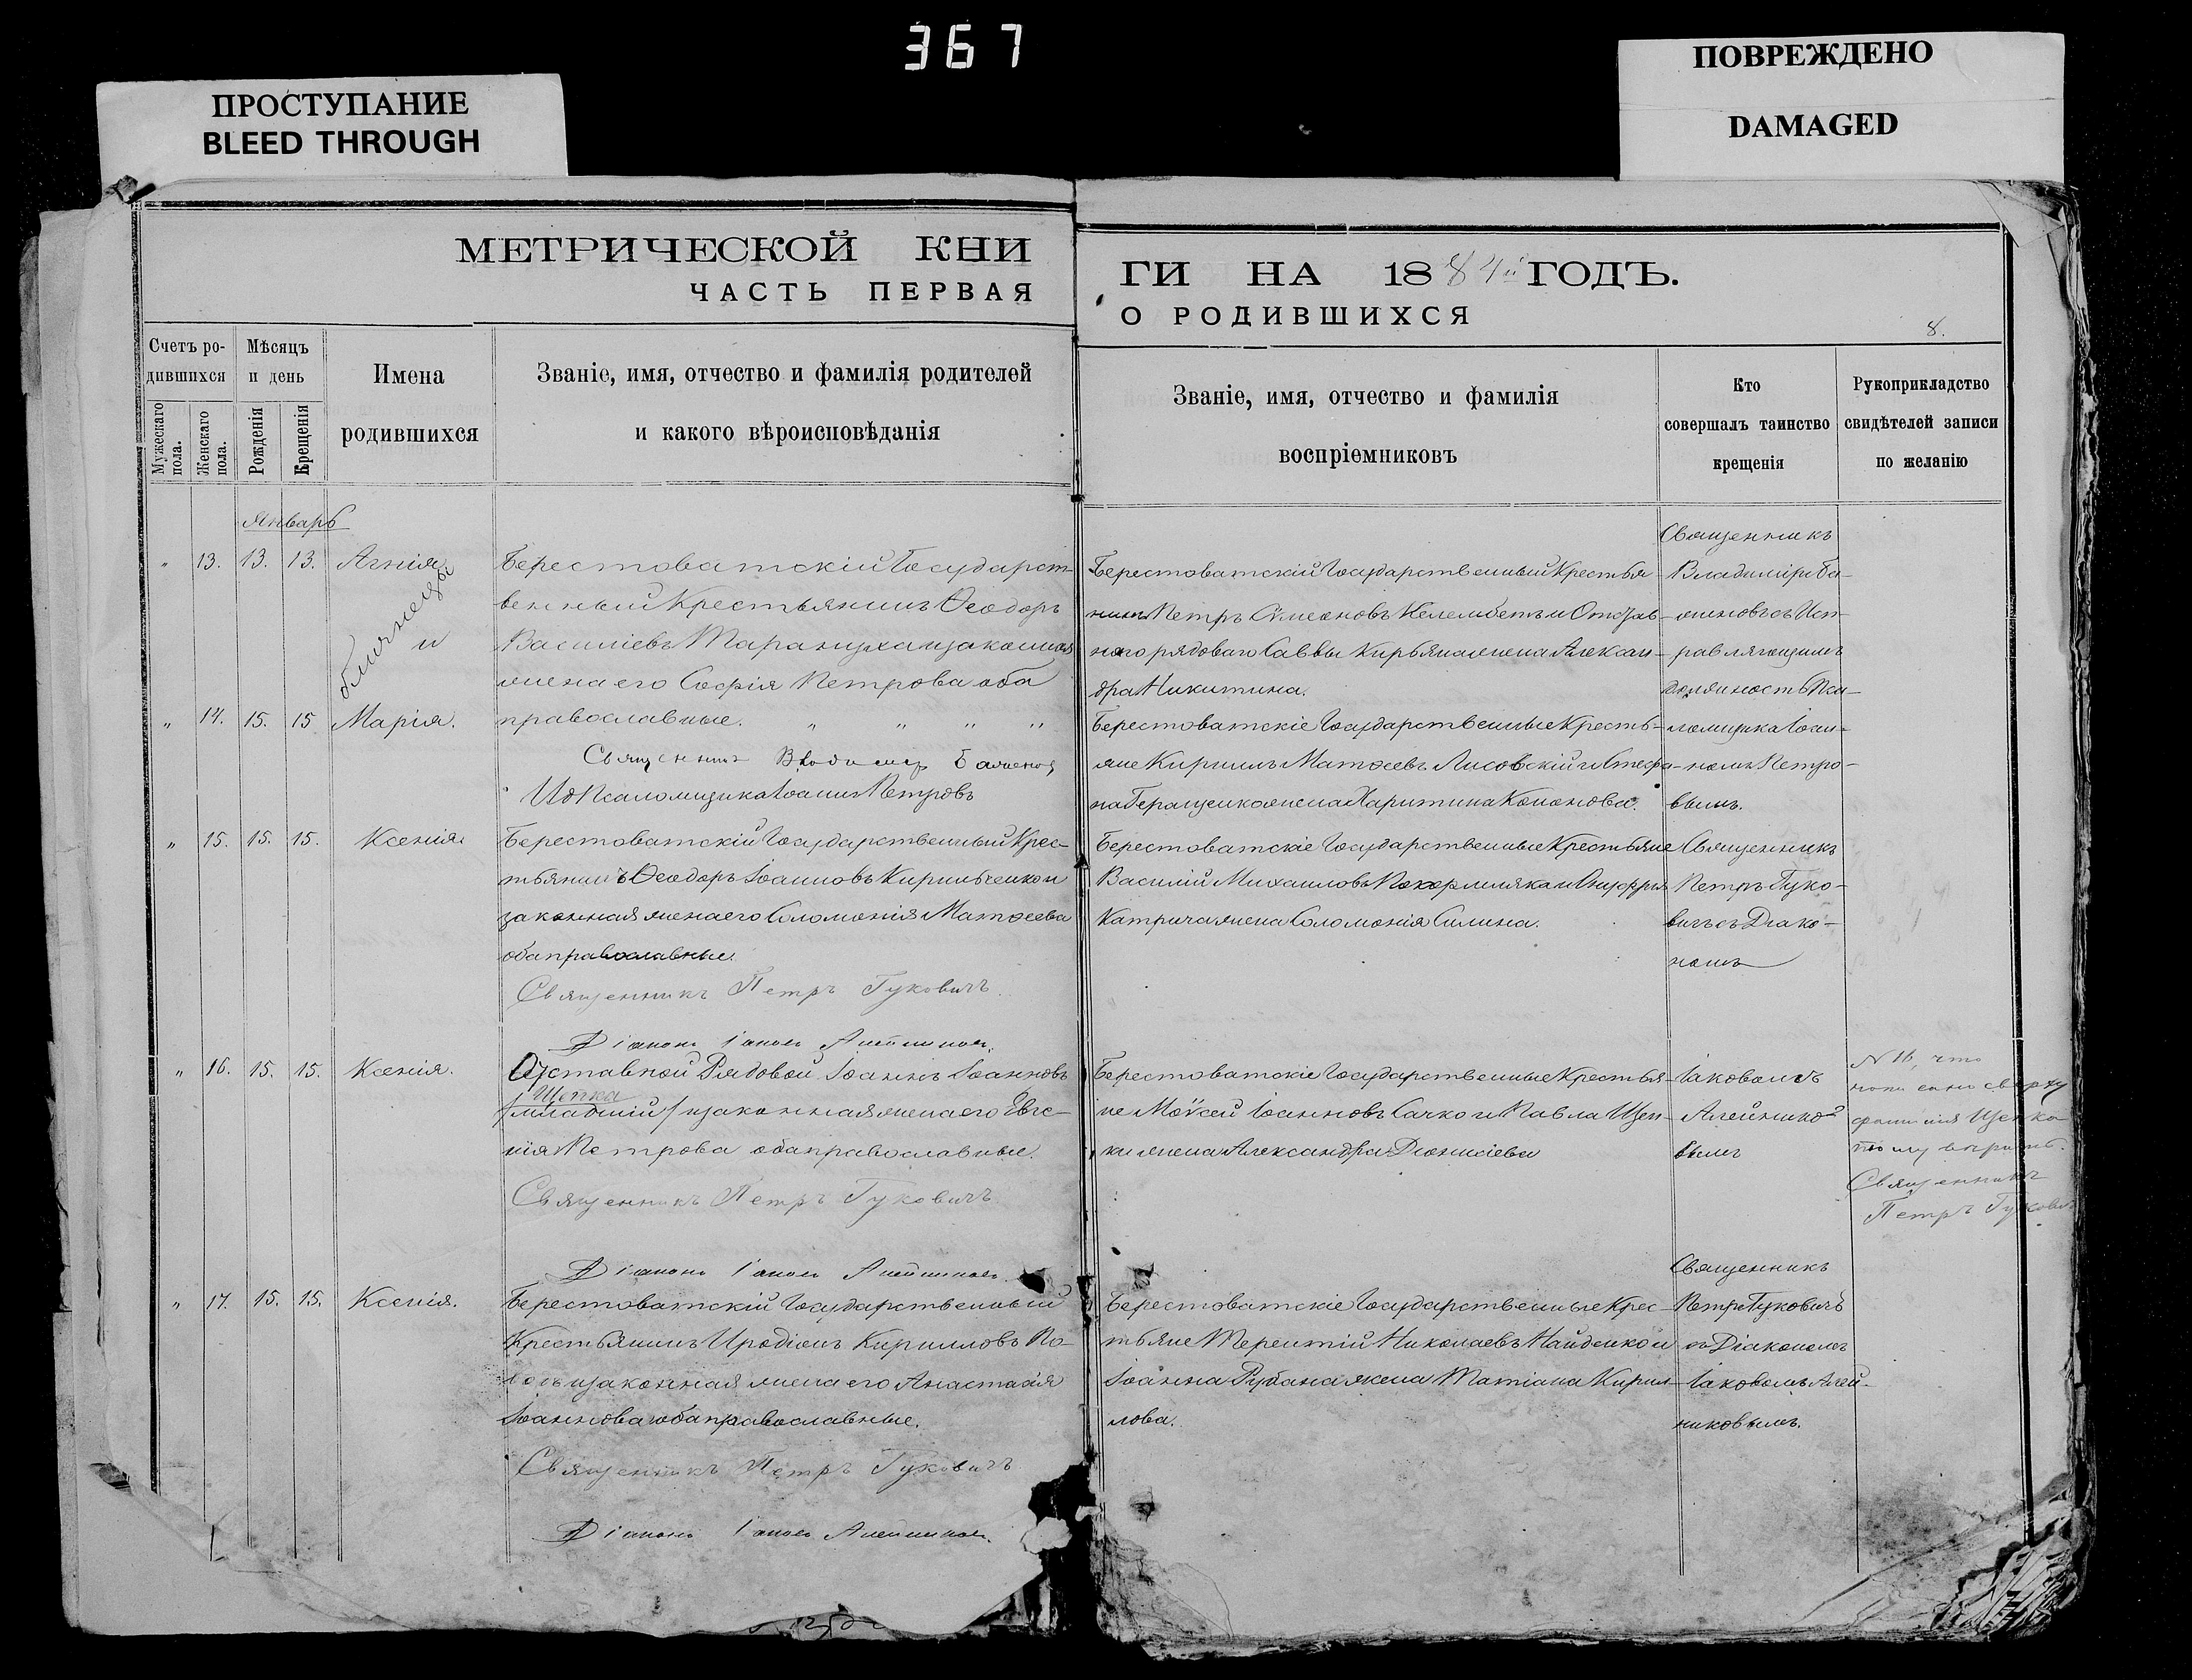 367
ПРОСТУПАНИЕ
BLEED THROUGH
ПОВРЕЖДЕНО
DAMAGED
МЕТРИЧЕСКОЙ КНИ
ЧАСТЬ ПЕРВАЯ
ГИ НА 1884й ГОДЪ.
О РОДИВШИХСЯ
8.
Счетъ ро-
дившихся
Мужескаго пола.
Женскаго пола.
Мѣсяцъ
и день
Рожденія
Крещенія
Имена
родившихся
Званіе, имя, отчество и фамилія родителей
и какого вѣроисповѣданія
Званіе, имя, отчество и фамилія
воспріемниковъ
Кто
совершалъ таинство
крещенія
Рукоприкладство
свидѣтелей записи
по желанію
Январь
" 13. 13. 13. Агнія
близнецы
и
Берестоватскій Государст-
венный Крестьянинъ Ѳеодоръ
Василіевъ Тарануха и законная
жена его Софія Петрова оба
" 14. 15. 15 Марія.
православные. " " " "
Священникъ Владимір Баженов
Ид Псаломщика Іоаннъ Петровъ
Берестоватскій Государственный Крестья-
нинъ Петръ Сѵмеоновъ Келембетъ и Отстав-
ного рядоваго Саввы Кирьяна жена Алексан-
дра Никитина.
Берестоватскіе Государственные Кресть-
яне Кириллъ Матѳеевъ Лисовскій и Стефа-
на Геращенко жена Харитина Кононова.
Священникъ
Владиміръ Ба-
женовъ съ Исп-
равляющимъ
должность Пса-
ломщика Іоан-
номъ Петро-
вымъ.
" 15. 15. 15. Ксенія.
Берестоватскій Государственный Крес-
тьянинъ Ѳеодоръ Іоанновъ Кирильченко и
законная жена его Соломонія Матѳеева
оба православные.
Священникъ Петръ Гуковичъ.
Діаконъ Іаков Алейников.
Берестоватскіе Государственные Крестьяне
Василій Михаиловъ и Онуфрія
Катрича жена Соломонія Силина.
Священникъ
Петръ Гуко-
вичъ съ Діако-
номъ
" 16. 15. 15. Ксенія.
Отставной Рядовой Іоаннъ Іоанновъ
Щепка
/младшій/ и законная жена его Евге-
нія Петрова оба православные.
Священникъ Петръ Гуковичъ
Діаконъ Іаков Алейников.
Берестоватскіе Государственные Крестья-
не Моѵсей Іоанновъ Сачко и Павла Щеп-
ки жена Александра Діонисіева
Іаковомъ
Алейнико-
вымъ
N 16, что
сверху
фамилія Щепка
Священникъ
Петръ Гукович
" 17. 15. 15. Ксенія.
Берестоватскій Государственный
Крестьянинъ Иродіонъ Кирилловъ
и законная жена его Анастасія
Іоаннова оба православные.
Священникъ Петръ Гуковичъ
Діаконъ Іаков Алейников.
Берестоватскіе Государственные Крес-
тьяне Терентій Николаевъ Найденко и
Іоанна Рубана жена Татіана Кирил-
лова.
Священникъ
Петръ Гуковичъ
съ Діакономъ
Іаковомъ Алей-
никовымъ.